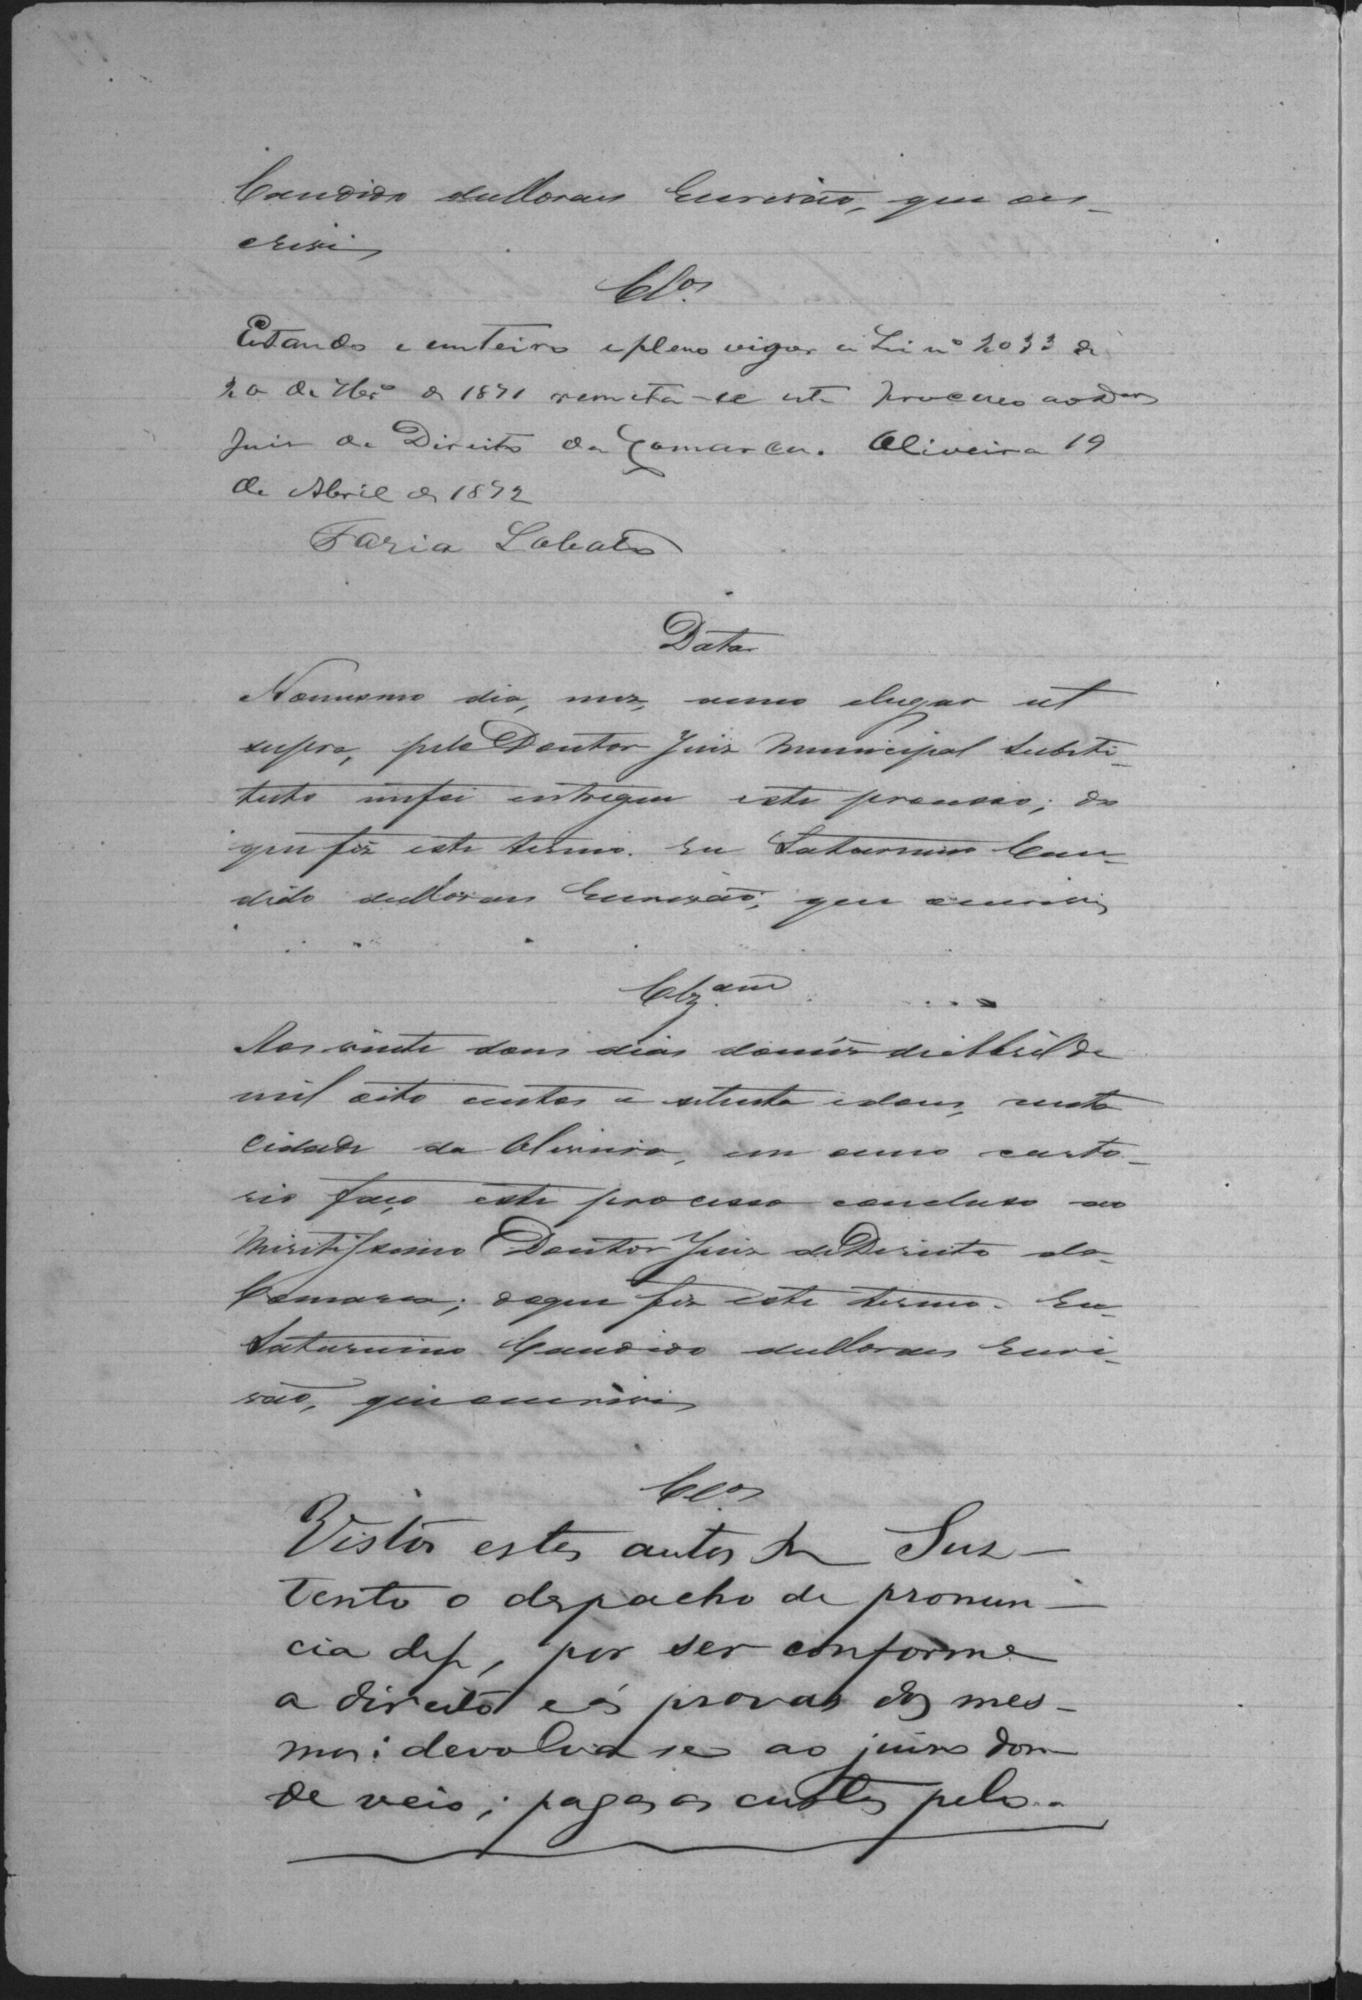 Candido de Moraes Escrivão, que es-
crevi
Clos.
Estando e enteiro e pleno vigor a Lei nº 2033 de
20 de 7brº de 1871 remeta-se este processo ao Dor
Juiz de Direito da Comarca. Oliveira 19
de Abril de 1872
Faria Lobato
Data
No mesmo dia, mez, anno elugar ut
supra, pelo Doutor Juiz Municipal Substi-
tuto mefoi entregue este processo; do
que fiz este termo. Eu Saturnino Can-
dido de Moraes Escrivão, que escrevi
Clzam
Aos vinte dous dias domez de Abril de
mil oito centos e setenta edous, nesta
Cidade da Oliveira, em meu carto-
rio faço este processo concluso ao
Miritissimo Doutor Juiz de Direito da
Comarca; doque fiz este termo. Eu
Saturnino Candido de Moraes Escri-
vão, que escrevi
Clos
Vistos estes autos Sus-
tento o despacho de pronun-
cia def, por ser conforme
a direito e ás provas dos mes-
mos: devolva se ao juizo don-
de veio; pagas as custas pelo